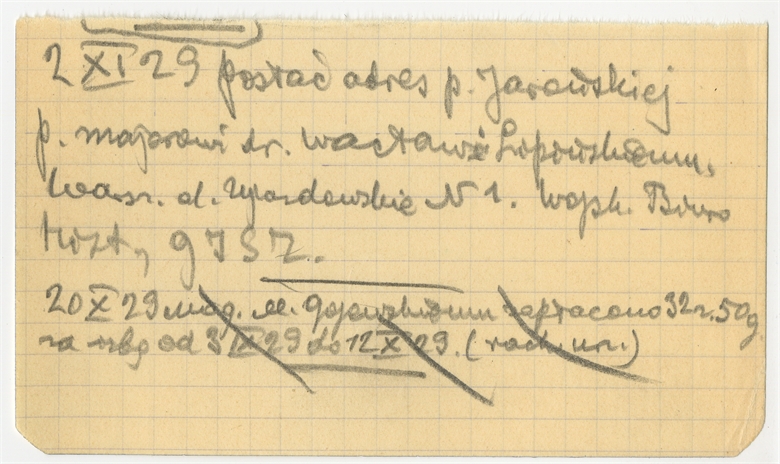 2 XI 29 posłać adres p. Jarońskiej
p. majorowi dr. Wacławowi Lipińskiemu,
Warsz. al. Ujazdowskie N 1. Wojsk. Biuro
Hist., GISZ.
20 X 29 Mag. zapłacono 32 zł. 50 g
za od 3 IX 29 do 12 X 29. (rach. urz.)